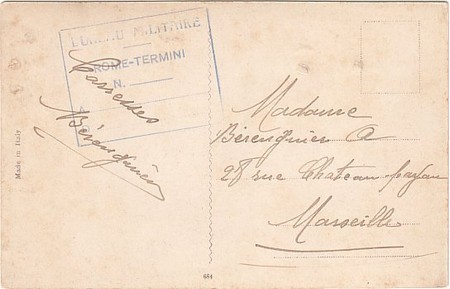 BUREAU MILITAIRE
ROME-TERMINI
N.
A
Caresses
Bérenguier
Made in Italy
Madame
Bérenguier A
28 rue Chateau payan
Marseille
684